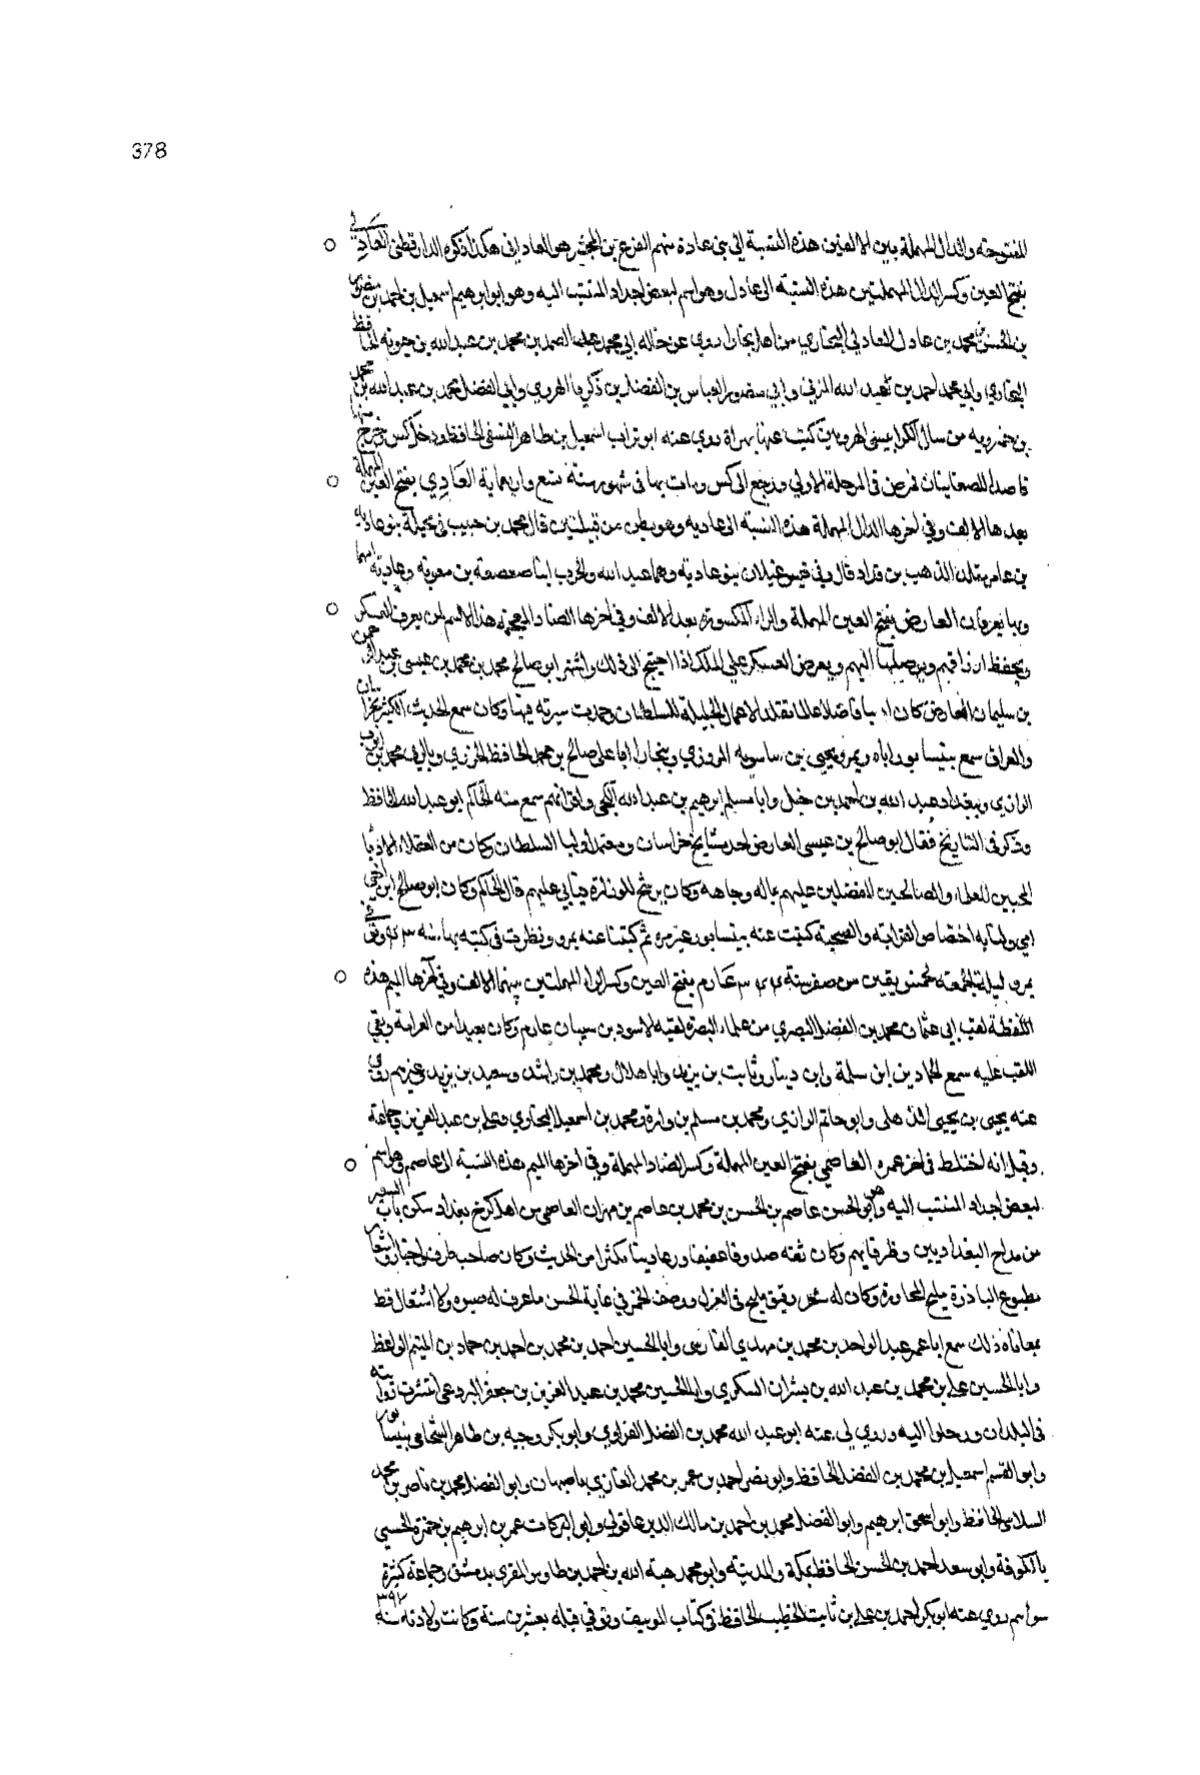 378
المفتوحة والدال المهملة بين الالفين هذه النسبة الى بني عادة منهم الفزع بن المجشر هو العادانى هكذا ذكره الدارقطنى العَادِلي
بفتح العين وكسر الدال المهملتين هذه النسبة الى عادل وهو اسم لبعض اجداد المنتسب اليه وهو ابو ابرهيم اسمعيل بن احمد بن
بن الحسن بن محمد بن عادل العادلي البخاري من اهل بخارا روي عن خاله ابي محمد عبد الصمد بن محمد بن عبد الله بن حيويه الحافظ
البخاري وابي محمد احمد بن عبد الله المزني وابي منصور العباس بن الفضل بن زكريا الهروي وابي الفضل محمد بن عبد الله بن محمد
بن خميرويه من سال الكرابيسي الهرويين كتب عنهما بهراة روي عنه ابو تراب اسمعيل بن طاهر النسفى الحافظ ودخل كس وخرج
قاصدا للصغانيان فمرض فى المرحلة الاولي ورجع الى كس ومات بها فى شهور سنة تسع واربعماية العَادِي بفتح العين المهملة
بعدها الالف وفي اخرها الدال المهملة هذه النسبة الى عادية وهو بطن من قبيلتين قال محمد بن حبيب فى بجيلة بنو عادية
بن عامر بن قداد قال وفي قيس عيلان بنو عادية وهما عبد الله والحرب ابنا صعصعة بن معوية وعادية امهما
وبها يعرفان العارض بفتح العين المهملة والراء المكسورة بعد الالف وفي اخرها الضاد المعجمة هذا الاسم لمن يعرف العسكر
ويحفظ ارزاقهم ويوصلها اليهم ويعرض العسكر علي الملك اذا احتيج الى ذلك واشتهر ابو صالح محمد بن محمد بن عيسى بن عبد الرحمن
بن سليمان العارض كان اديبا فاضلا عالما تقلد الاعمال الجليلة للسلطان وحمدت سيرته فيها وكان سمع الحديث الكثير بخراسان
والعراق سمع بنيسابور اباه وبمرو يحيى بن ساسويه المروزي وببخارا ابا علي صالح بن محمد الحافظ وبالري محمد بن ايوب
الرازي وببغداد عبد الله بن احمد بن حنبل وابا مسلم ابرهيم بن عبد الله الكجي واقرانهم سمع منه الحاكم ابو عبد الله الحافظ
وذكر فى التاريخ فقال ابو صالح بن عيسى العارض احد مشايخ خراسان ومعتمد اوليا السلطان وكان من العقلاء الادبا
المحبين للعلماء والصالحين المفضلين عليهم بماله وجاهه وكان يرشح للوزارة فيابي عليهم قال الحاكم وكان ابو صالح ابن اخي
امي ولنا به اختصاص القرابة والصحبة كتبت عنه بنيسابور غير مرة ثم كتبنا عنه بمرو ونظرت فى كتبه بها وتوفي
بمرو ليلة الجمعة لخمس بقين من صفر سنة عَارم بفتح العين وكسر الراء المهملتين بينهما الالف وفي آخرها الميم هذه
اللفظة لقب ابى عثمان محمد بن الفضل البصري من علماء البصرة لقبه الاسود بن شيبان عارم وكان بعيدا من العرامة وبقي
اللقب عليه سمع الحمادين ابن سلمة وابن دينار وثابت بن يزيد وابا هلال ومحمد بن راشد وسعيد بن يزيد وغيرهم روي
عنه يحيى بن يحيى الذهلى وابو حاتم الرازي ومحمد بن مسلم بن وارة ومحمد بن اسمعيل البخاري وعلى بن عبد العزيز وجماعة
وقيل انه اختلط في اخر عمره العاصمي بفتح العين المهملة وكسر الصاد المهملة وفي اخرها الميم هذه النسبة الى عاصم وهو اسم
لبعض اجداد المنتسب اليه وهو ابو الحسن عاصم بن الحسن بن محمد بن عاصم بن مهران العاصمي من اهل كرخ بغداد سكن باب
من ملاح البغداديين وظرفايهم وكان ثقة صدوقا عفيفا مكثرا من الحديث وكان صاحب ظرف واخبار واشعار
مطبوع النادرة مليح المحاورة وكان له شعر رقيق مليح فى الغزل ووصف الخمر في غاية الحسن ما عرف له صبوه ولا اشتغال قط
بمعاناة ذلك سمع ابا عمر عبد الواحد بن محمد بن مهدي الفارسى وابا الحسين احمد بن محمد بن احمد بن حماد بن المتيم الواعظ
وابا الحسين علي بن محمد بن عبد الله بن بشران السكري وابا الحسين محمد بن عبد العزيز بن جعفر البردعى انتشرت روايته
فى البلدان ورحلوا اليه وروي لى عنه ابو عبد الله محمد بن الفضل الفراوي وابو بكر وجيه بن طاهر الشحامى بنيسابور
وابو القسم اسمعيل بن محمد بن الفضل الحافظ وابو نصر احمد بن عمر بن محمد الغازي باصبهان وابو الفضل محمد بن ناصر بن محمد
السلامى الحافظ وابو اسحق ابرهيم وابو الفضل محمد بن احمد بن مالك وابو البركات عمر بن ابرهيم بن حمزة الحسيني
بالكوفة وابو سعد احمد بن الحسن الحافظ بمكة والمدينة وابو محمد هبة الله بن احمد بن طاوس المقري بدمشق وجماعة كثيرة
سواهم روي عنه ابو بكر احمد بن علي بن ثابت الخطيب الحافظ فى كتاب وتوفي قبله بعشرين سنة وكانت ولادته سنة ٣٩٧